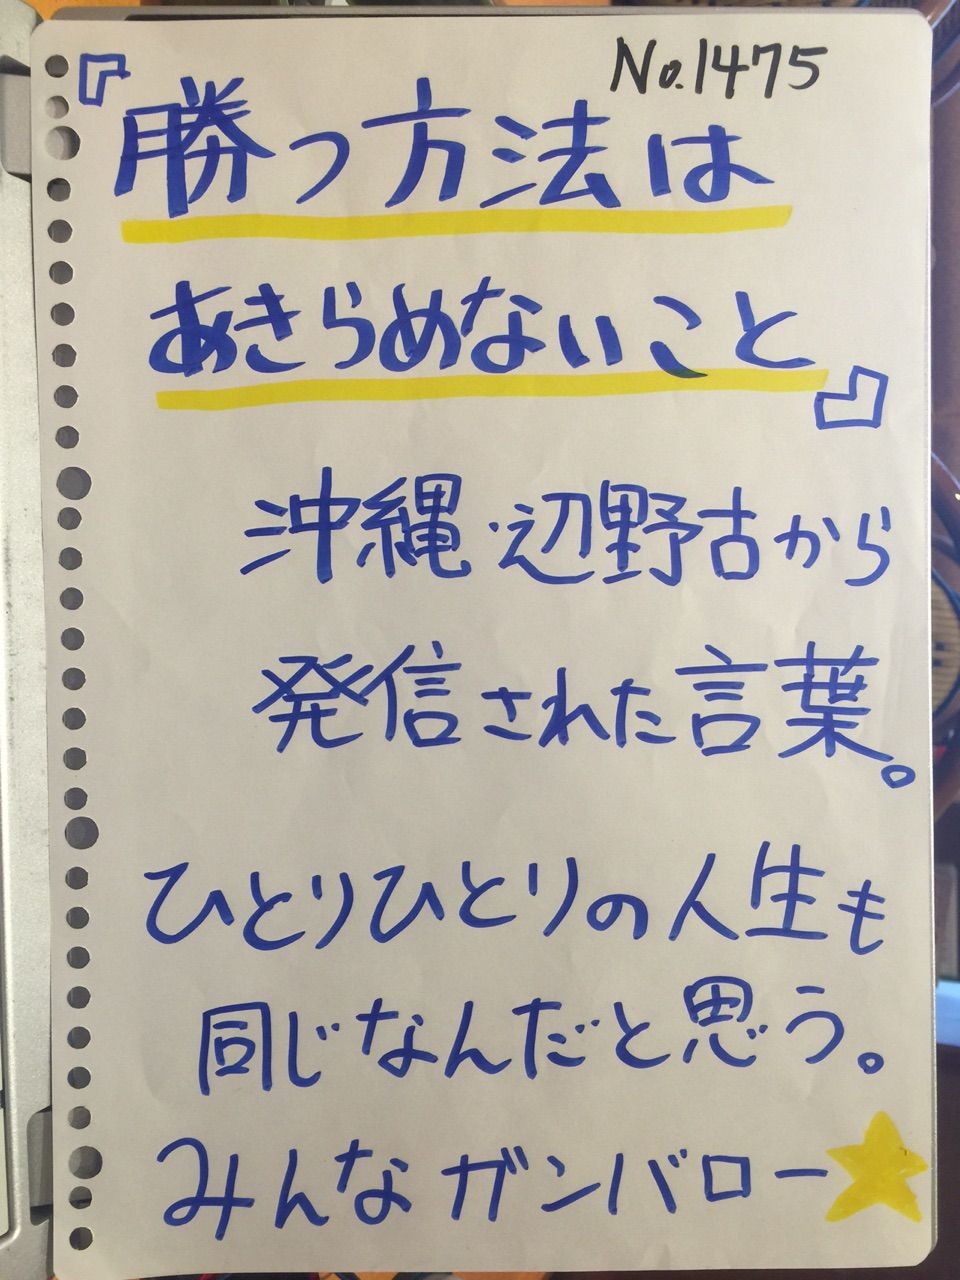 No.1475
『勝つ方法は
あきらめないこと』
沖縄・辺野古から
発信された言葉。
ひとりひとりの人生も
同じなんだと思う。
みんなガンバロー